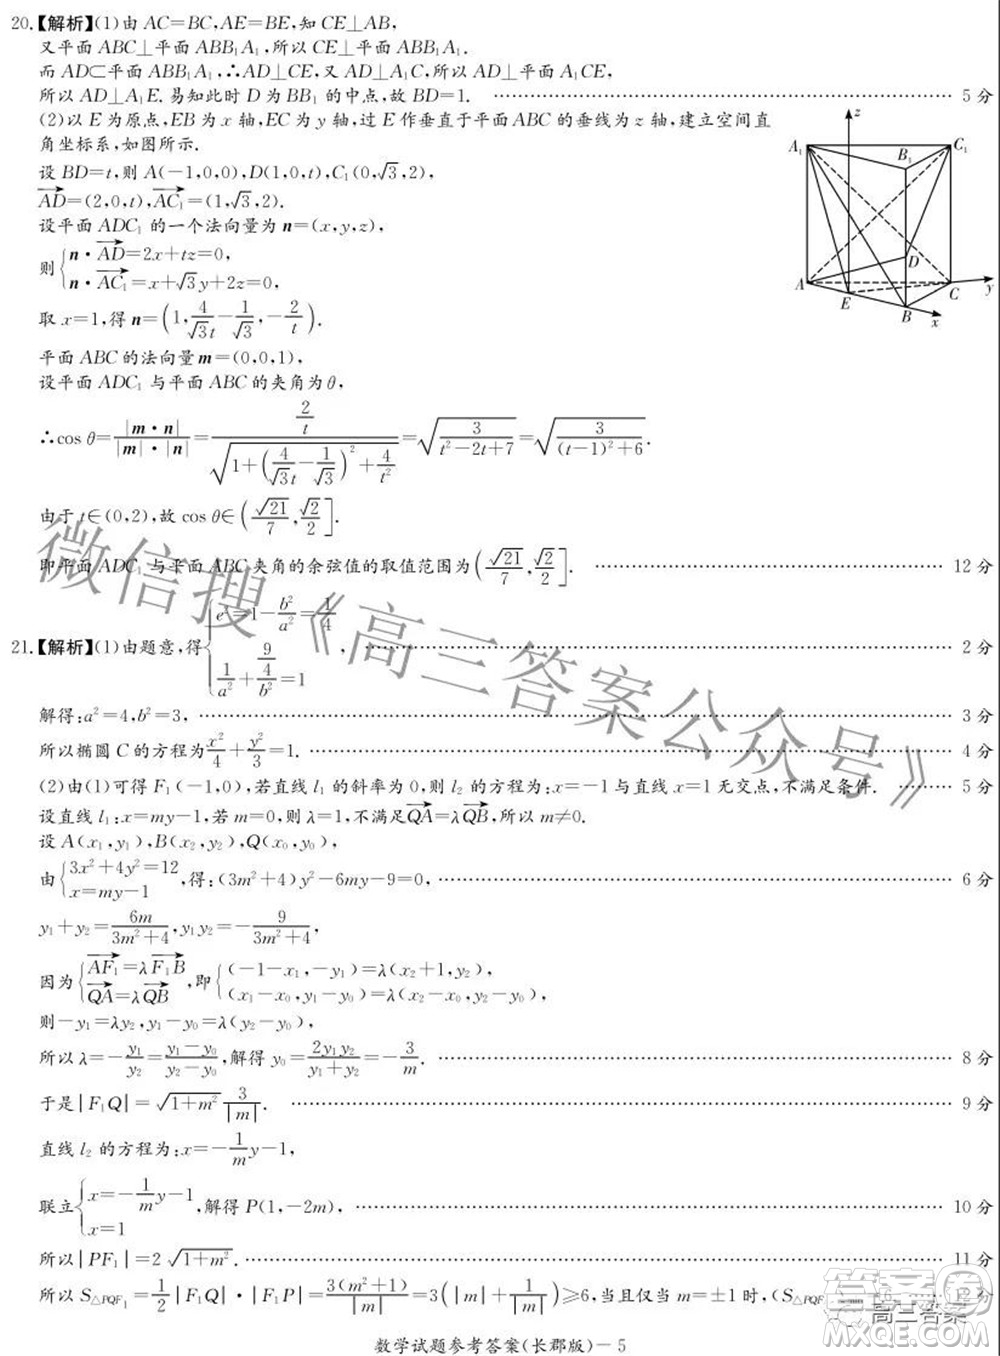 20.【解析】(1)由 AC=BC,AE=BE,知 CE⊥AB,
又平面 ABC⊥平面 ABB₁A₁,所以 CE⊥平面 ABB₁A₁.
而 AD⊂平面 ABB₁A₁,∴AD⊥CE,又 AD⊥A₁C,所以 AD⊥平面 A₁CE,
所以 AD⊥A₁E. 易知此时 D 为 BB₁ 的中点,故 BD=1. …… 5 分
(2)以 E 为原点,EB 为 x 轴,EC 为 y 轴,过 E 作垂直于平面 ABC 的垂线为 z 轴,建立空间直
角坐标系,如图所示.
设 BD=t,则 A(-1,0,0),D(1,0,t),C₁(0,√3,2),
AD→=(2,0,t),AC₁→=(1,√3,2).
设平面 ADC₁ 的一个法向量为 n=(x,y,z),
则{n·AD→=2x+tz=0,
n·AC₁→=x+√3y+2z=0,
取 x=1,得 n=(1,4/(√3t)-1/√3,-2/t).
平面 ABC 的法向量 m=(0,0,1),
设平面 ADC₁ 与平面 ABC 的夹角为 θ,
∴cos θ=|m·n|/(|m|·|n|)=(2/t)/√(1+(4/(√3t)-1/√3)²+4/t²)=√(3/(t²-2t+7))=√(3/((t-1)²+6)).
由于 t∈(0,2),故 cos θ∈(√21/7,√2/2].
即平面 ADC₁ 与平面 ABC 夹角的余弦值的取值范围为(√21/7,√2/2]. …… 12 分
z
A₁
B₁
C₁
D
A
E
B
C
x
y
21.【解析】(1)由题意,得{e²=1-b²/a²=1/4
1/a²+(9/4)/b²=1, …… 2 分
解得:a²=4,b²=3, …… 3 分
所以椭圆 C 的方程为x²/4+y²/3=1. …… 4 分
(2)由(1)可得 F₁(-1,0),若直线 l₁ 的斜率为 0,则 l₂ 的方程为:x=-1 与直线 x=1 无交点,不满足条件. …… 5 分
设直线 l₁:x=my-1,若 m=0,则 λ=1,不满足QA→=λQB→,所以 m≠0.
设 A(x₁,y₁),B(x₂,y₂),Q(x₀,y₀),
由{3x²+4y²=12
x=my-1,得:(3m²+4)y²-6my-9=0, …… 6 分
y₁+y₂=6m/(3m²+4),y₁y₂=-9/(3m²+4),
因为{AF₁→=λF₁B→
QA→=λQB→,即{(-1-x₁,-y₁)=λ(x₂+1,y₂),
(x₁-x₀,y₁-y₀)=λ(x₂-x₀,y₂-y₀),
则-y₁=λy₂,y₁-y₀=λ(y₂-y₀),
所以 λ=-y₁/y₂=(y₁-y₀)/(y₂-y₀),解得 y₀=2y₁y₂/(y₁+y₂)=-3/m. …… 8 分
于是|F₁Q|=√(1+m²)·3/|m|. …… 9 分
直线 l₂ 的方程为:x=-(1/m)y-1,
联立{x=-(1/m)y-1
x=1,解得 P(1,-2m), …… 10 分
所以|PF₁|=2√(1+m²). …… 11 分
所以 S△PQF₁=1/2|F₁Q|·|F₁P|=3(m²+1)/|m|=3(|m|+1/|m|)≥6,当且仅当 m=±1 时,(S△PQF
数学试题参考答案(长郡版)-5
微信搜《高三答案公众号》
答案圈
高三答案